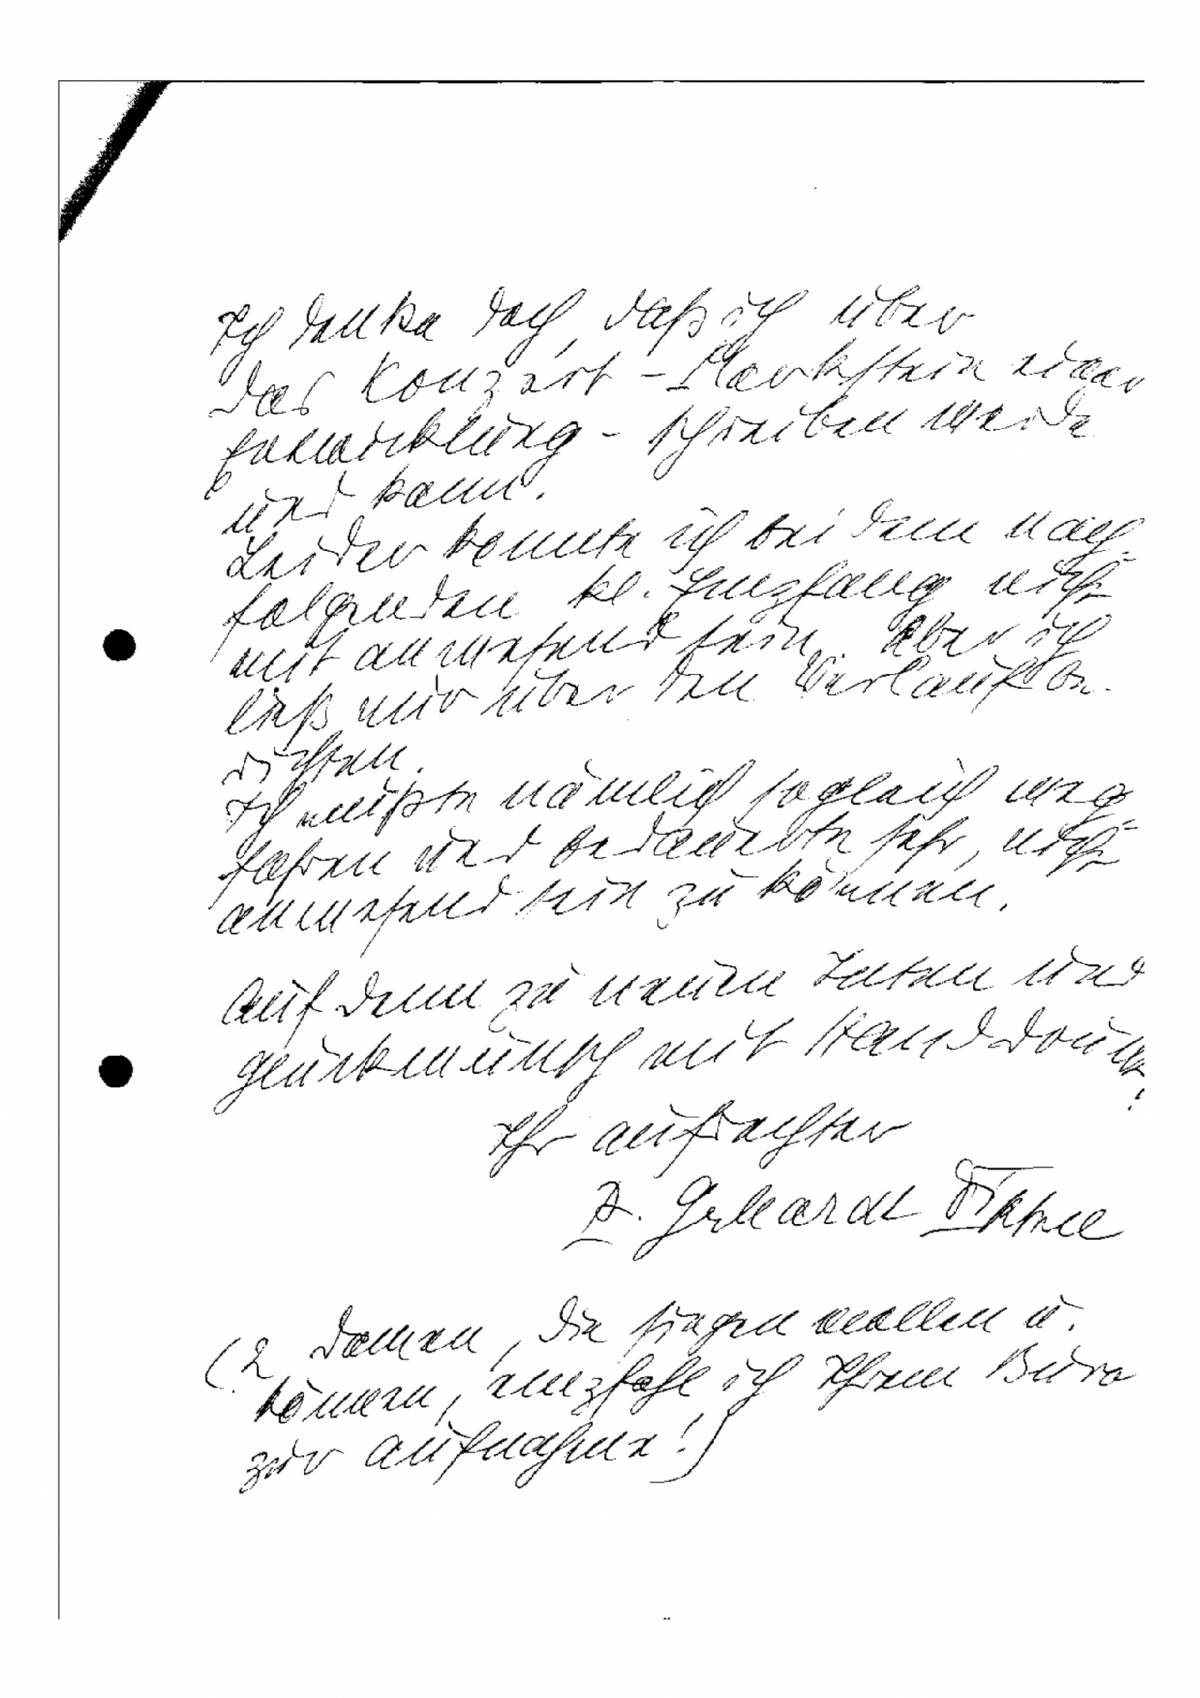 Ich denke doch, daß ich über
das Konzert - Markstein einer
Entwicklung - schreiben werde
und kann.
Leider konnte ich bei dem nach-
folgenden kl. Empfang nicht
mit anwesend sein. Aber ich
ließ mir über den Verlauf be-
richten.
Ich mußte nämlich sogleich weg-
fahren und bedauerte sehr, nicht
anwesend sein zu können.
Auf denn zu neuen Taten und
Glückwunsch mit Handdruck!
Ihr aufrechter
Gerhardt
(2 Damen, die singen wollen u.
können, empfahl ich Ihrem Büro
zur Aufnahme!)